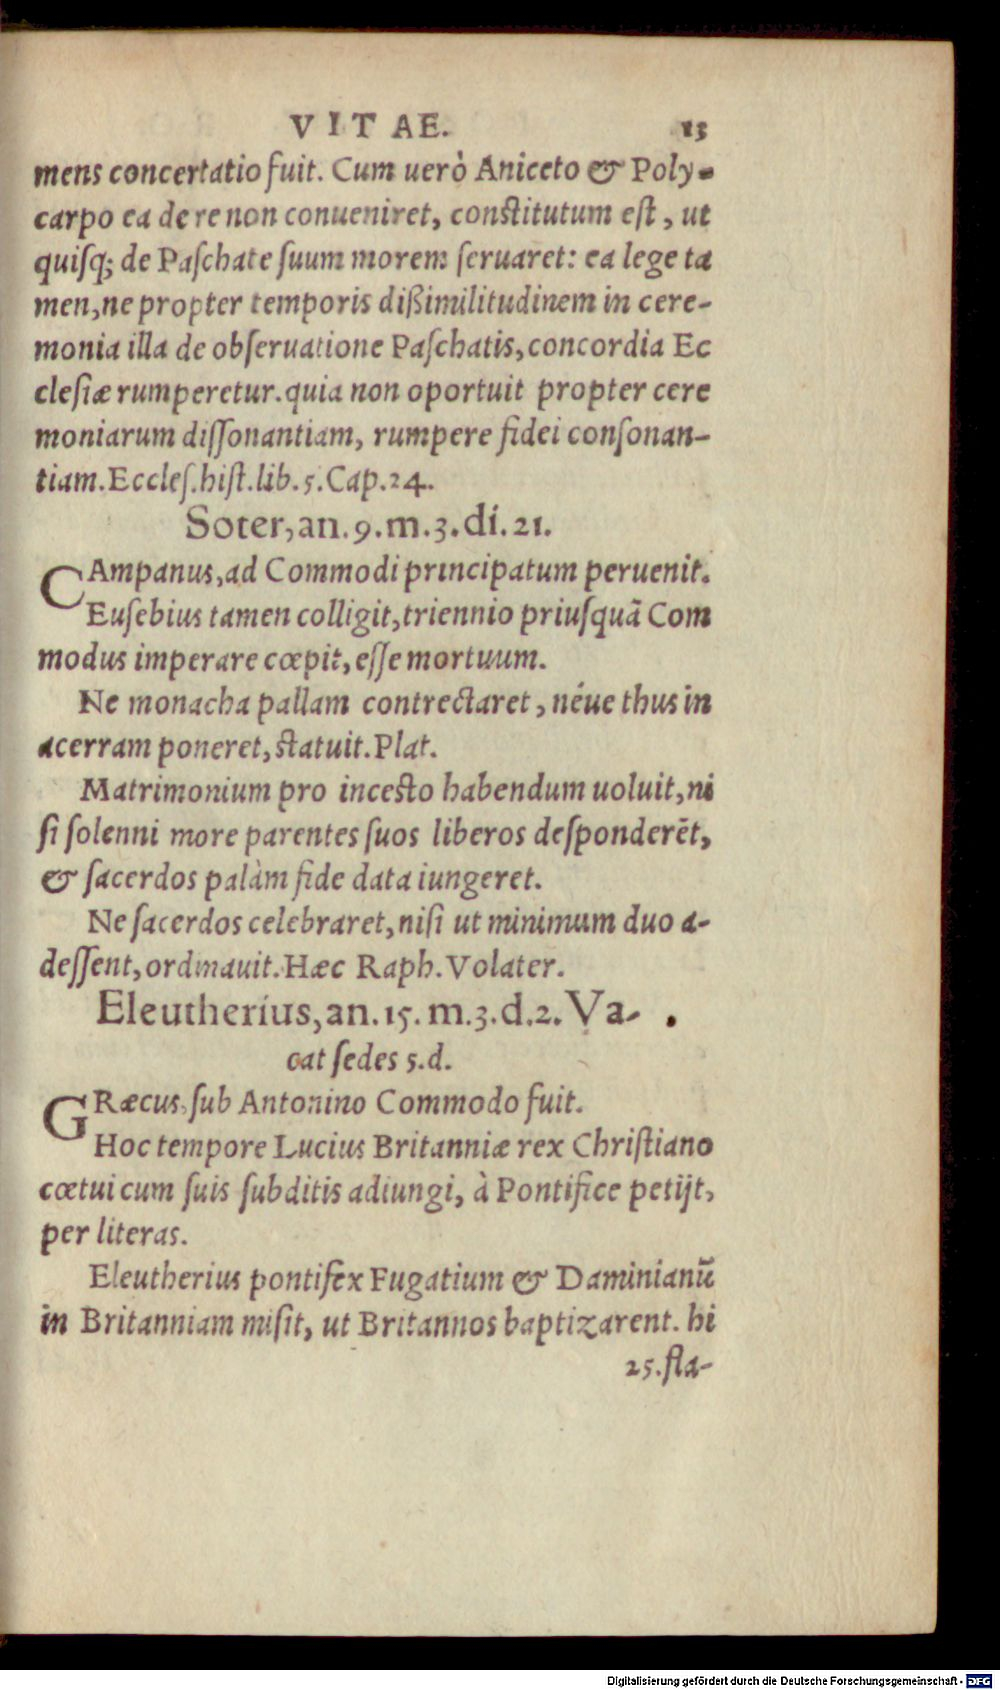 VITAE. 13
mens concertatio fuit. Cum uerò Aniceto & Poly-
carpo ea de re non conueniret, constitutum est, ut
quisq; de Paschate suum morem seruaret: ea lege ta
men, ne propter temporis dißimilitudinem in cere-
monia illa de obseruatione Paschatis, concordia Ec
clesiæ rumperetur. quia non oportuit propter cere
moniarum dissonantiam, rumpere fidei consonan-
tiam. Eccles. hist. lib. 5. Cap. 24.
Soter, an. 9. m. 3. di. 21.
CAmpanus, ad Commodi principatum peruenit.
Eusebius tamen colligit, triennio priusquã Com
modus imperare cœpit, esse mortuum.
Ne monacha pallam contrectaret, néue thus in
acerram poneret, statuit. Plat.
Matrimonium pro incesto habendum uoluit, ni
si solenni more parentes suos liberos desponderẽt,
& sacerdos palàm fide data iungeret.
Ne sacerdos celebraret, nisi ut minimum duo a-
dessent, ordinauit. Hæc Raph. Volater.
Eleutherius, an. 15. m. 3. d. 2. Va-
cat sedes 5. d.
GRæcus, sub Antonino Commodo fuit.
Hoc tempore Lucius Britanniæ rex Christiano
cœtui cum suis subditis adiungi, à Pontifice petijt,
per literas.
Eleutherius pontifex Fugatium & Daminianũ
in Britanniam misit, ut Britannos baptizarent. hi
25. fla-
Digitalisierung gefördert durch die Deutsche Forschungsgemeinschaft - DFG